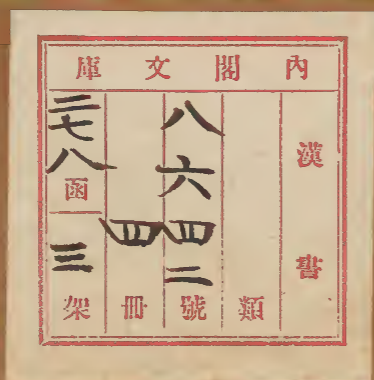 內閣文庫
漢書
類
八六四二號
四冊
三七八函
三架